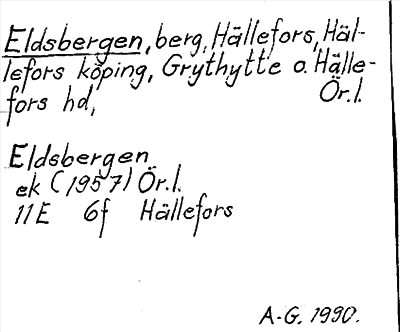 Eldsbergen, berg, Hällefors, Häl-
lefors köping, Grythytte o. Hälle-
fors hd, Ör.l.
Eldsbergen
ek (1957) Ör.l.
11E 6f Hällefors
A-G. 1990.